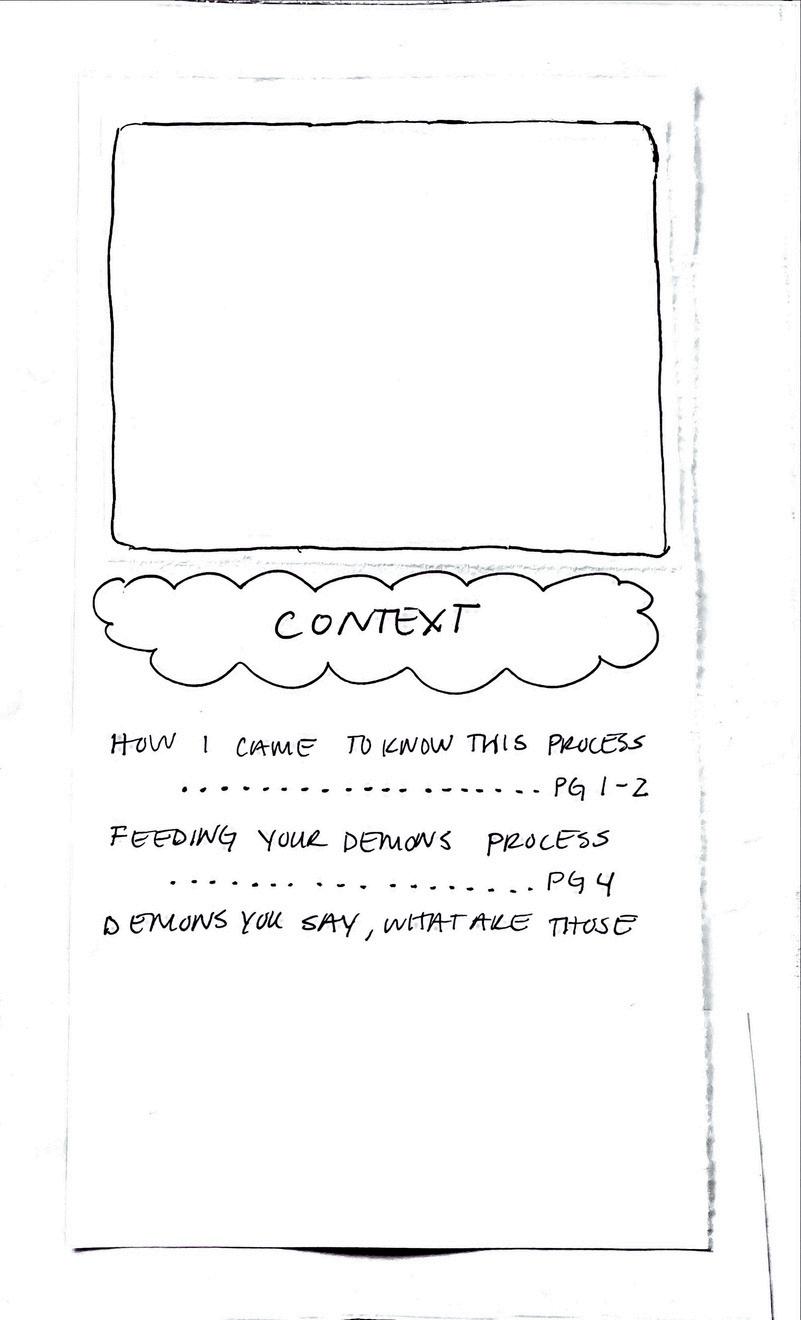 CONTEXT
HOW I CAME TO KNOW THIS PROCESS
.................... PG 1-2
FEEDING YOUR DEMONS PROCESS
.................... PG 4
DEMONS YOU SAY, WHAT ARE THOSE